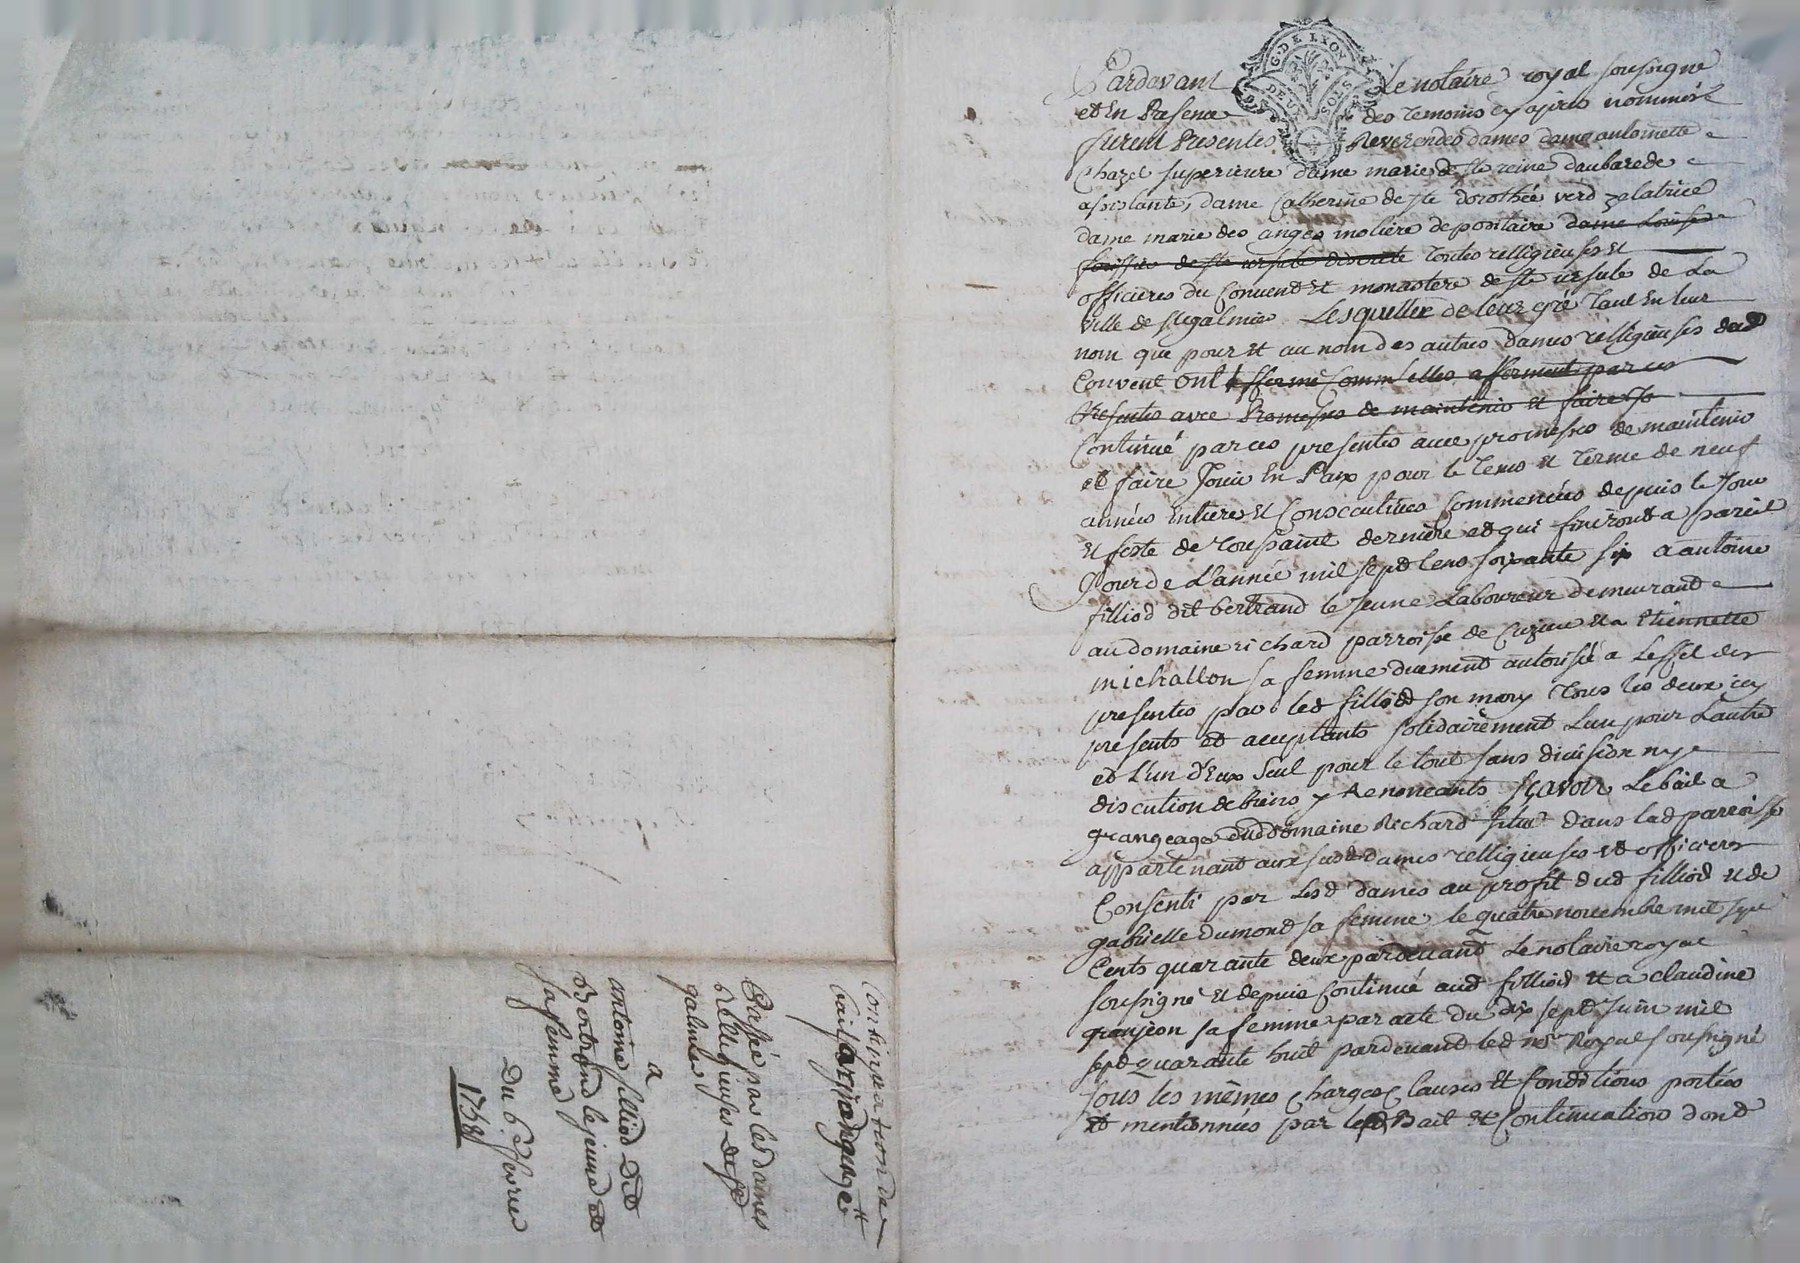 Continuation de
bail a grangeage
Passée par les dames
Relligieuses de st
galmier
a
antoine filliod dit
Bertrand le jeune et
sa femme
Du 6e fevrier
1758
G. DE LYON
DEUX SOLS
Pardavant Le notaire royal soussigné
et En Presence des temoins cy apres nommés
furent Presentes Reverendes dames dame antoinette
Chazel superieure dame marie de ste reine daubarede
assistante, dame Catherine de ste dorothée verd zelatrice
dame marie des anges moliere depositaire dame Louise
de ste ursule discrete toutes relligieuses et
officieres du Convent et monastere de ste ursule de La
ville de st galmier Lesquelles de leur gré tant En leur
nom que pour et au nom des autres dames relligieuses dud
Convent ont affermé Comm'elles afferment par ces
Presentes avec Promesses de maintenir et faire Jo
Continué par ces presentes avec promesses de maintenir
et faire Jouir En Paix pour le tems et terme de neuf
années Entieres et Consecutives Commencées depuis le Jour
et feste de toussaint derniere et qui finiront a pareil
Jour de L'année mil sept Cens soixante six a antoine
filliod dit bertrand le Jeune Laboureur demeurant
au domaine richard parroisse de Cuzieu et a Etiennette
michallon sa femme duement autorisée a Leffet des
presentes par led filliod son mary tous les deux icy
presents et acceptants solidairement L'un pour L'autre
et L'un d'Eux seul pour le tout sans division ny
discution de biens y Renoncants Sçavoir Le bail a
grangeage dud domaine Richard situé dans lad parroisse
appartenant aux susd dames relligieuses et officieres
Consenti par Lesd dames au profit dud filliod et de
gabrielle dumond sa femme le quatre novembre mil sept
Cents quarante deux pardevant Le notaire royal
soussigné et depuis Continué aud filliod et a claudine
granjeon sa femme par acte du dix sept Juin mil
sept quarante huit pardevant led nre Royal soussigné
sous les mêmes Charges Clauses et Conditions portées
et mentionnées par led Bail et Continuation dont